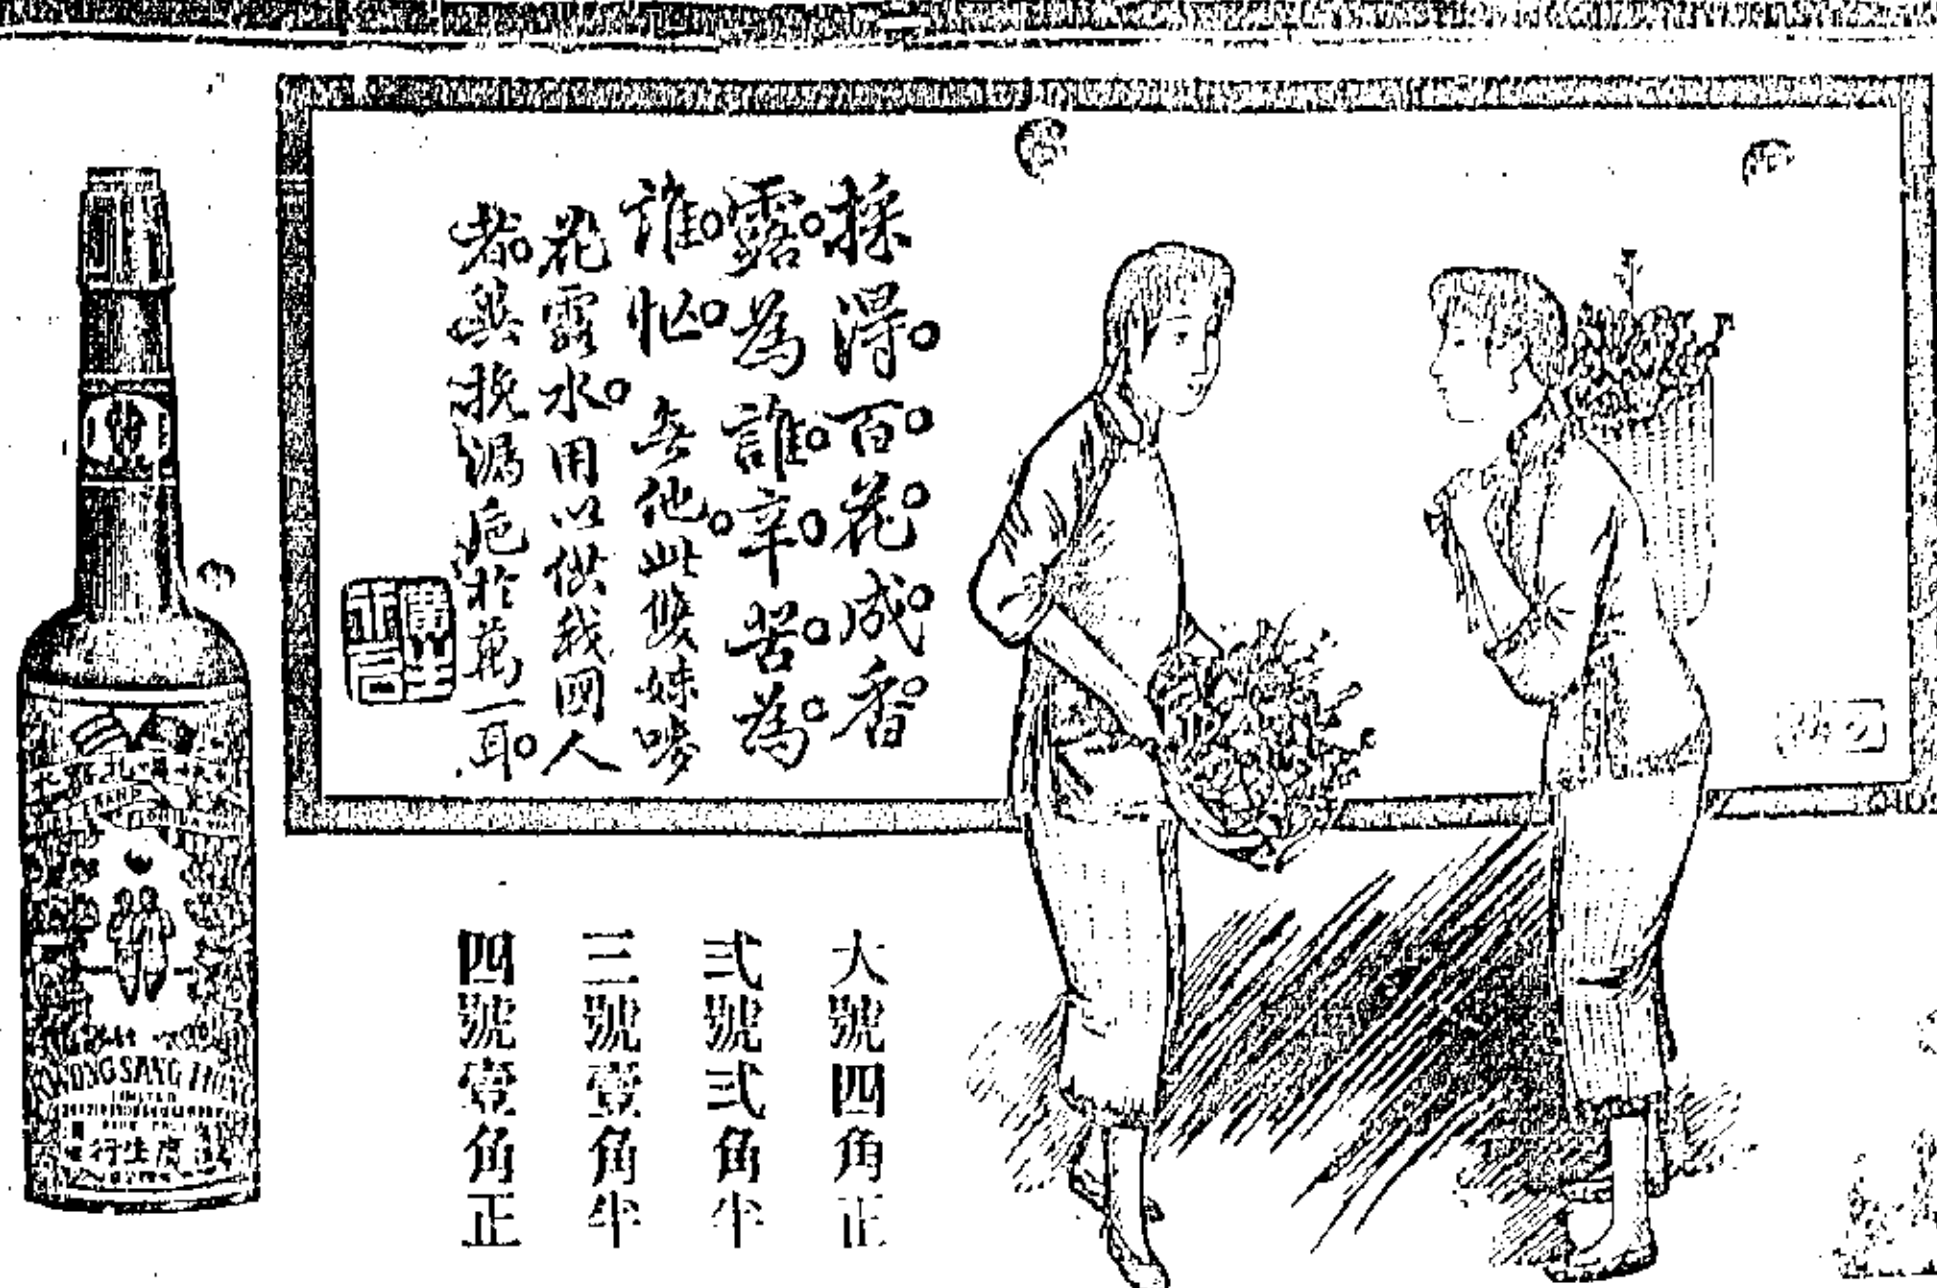 採得。百。花。成。香。
露。為誰。辛。苦。為。
誰。忙。無他。此雙妹嘜
花露水。用以供我國人
者。與挽漏巵於萬一耳。
廣生
行
大號四角正
弍號弍角半
三號壹角半
四號壹角正
KWONG SANG HONG
LIMITED
行生廣